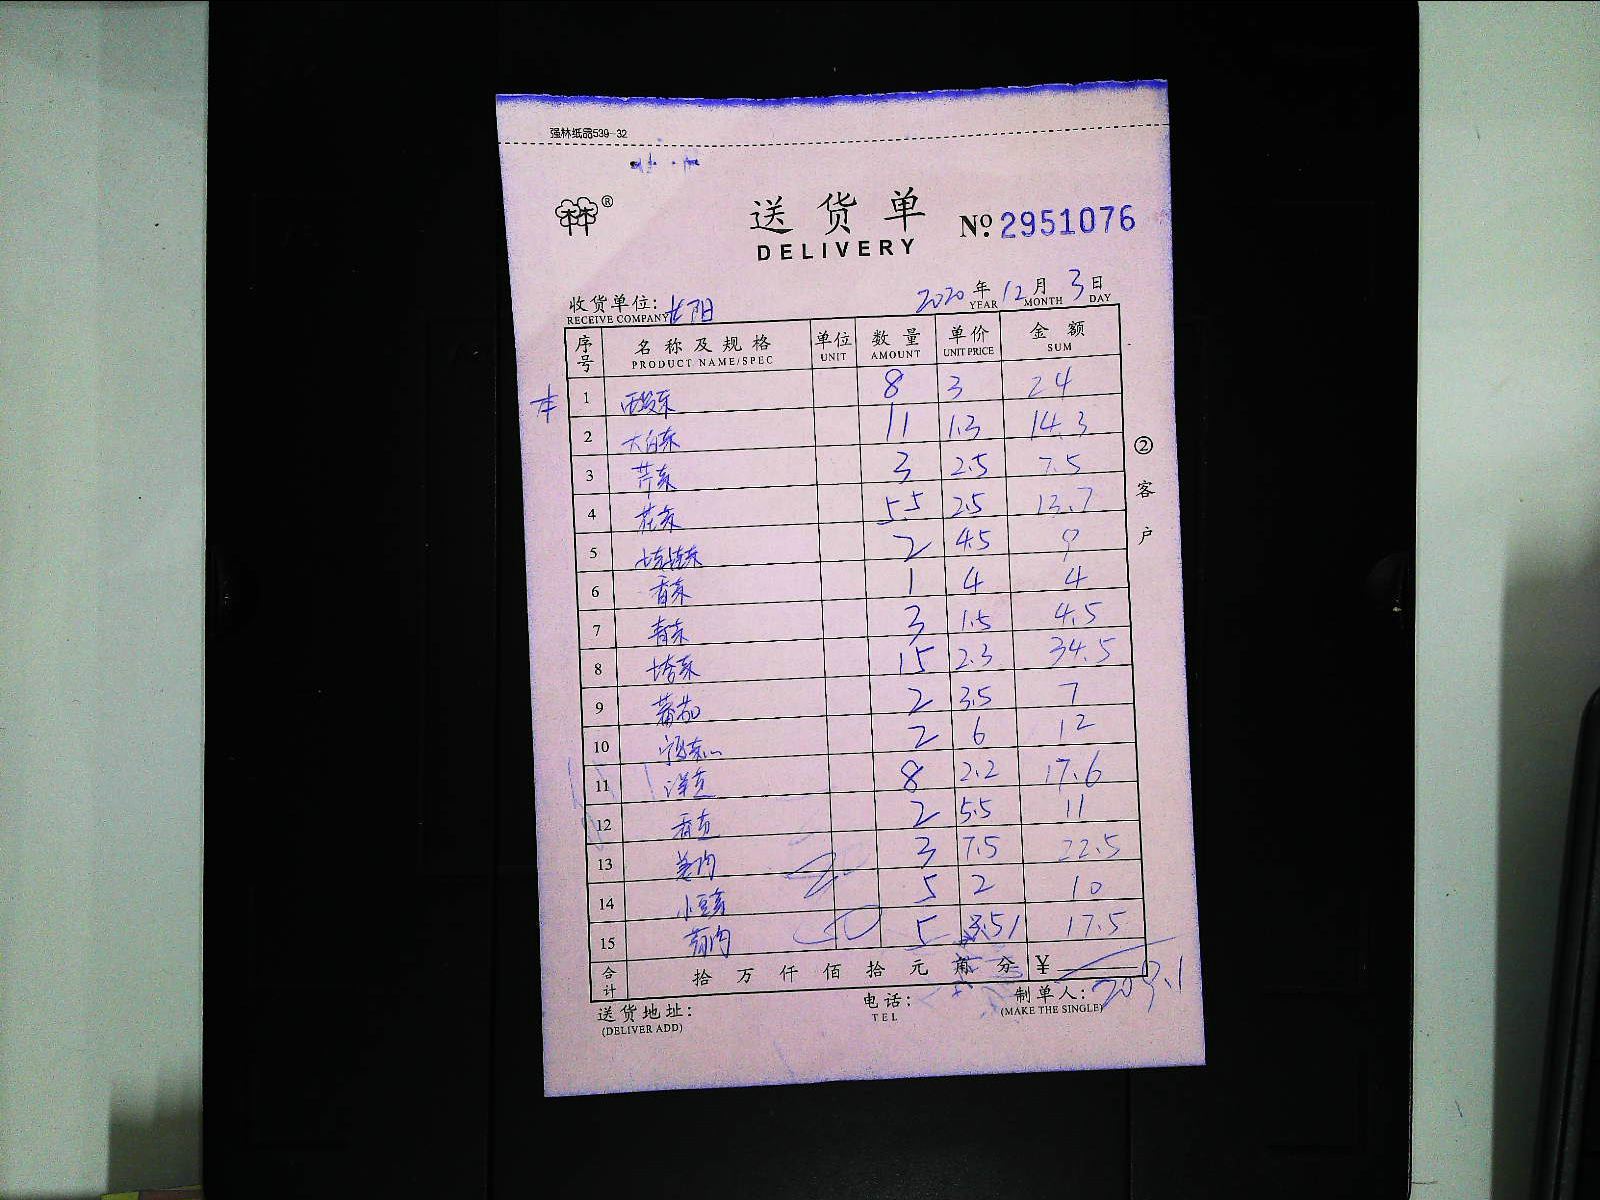 强林纸品539-32
林®
送货单 Nº 2951076
DELIVERY
收货单位: 长阳 2020年12月3日
RECEIVE COMPANY YEAR MONTH DAY
序号 名称及规格 单位 数量 单价 金额
PRODUCT NAME/SPEC UNIT AMOUNT UNIT PRICE SUM
1 8 3 24
2 大白菜 11 1.3 14.3
3 芹菜 3 2.5 7.5
4 花菜 5.5 2.5 13.7
5 2 4.5 9
6 香菜 1 4 4
7 青菜 3 1.5 4.5
8 15 2.3 34.5
9 蕃茄 2 3.5 7
10 2 6 12
11 8 2.2 17.6
12 2 5.5 11
13 姜 3 7.5 22.5
14 5 2 10
15 5 3.5 17.5
合计 拾万仟佰拾元角分 ¥ 209.1
送货地址: 电话: 制单人:
(DELIVER ADD) TEL (MAKE THE SINGLE)
②客户